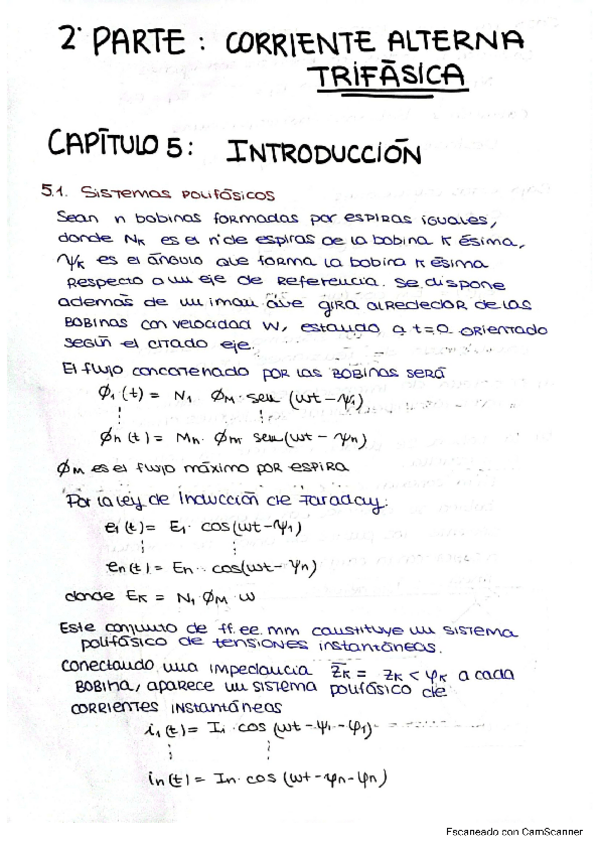 2ª PARTE: CORRIENTE ALTERNA
TRIFÁSICA
CAPÍTULO 5: INTRODUCCIÓN
5.1. SISTEMAS POLIFÁSICOS
Sean n bobinas formadas por espiras iguales,
donde Nκ es el nº de espiras de la bobina κ ésima,
Ψκ es el ángulo que forma la bobina κ ésima
respecto a un eje de referencia. Se dispone
además de un imán que gira alrededor de las
bobinas con velocidad W, estando a t=0 orientado
según el citado eje.
El flujo concatenado por las bobinas será
ϕ₁(t) = N₁ · ϕM · sen (wt - ψ₁)
⋮ ⋮
ϕn(t) = Mn · ϕm sen (wt - ψn)
ϕM es el flujo máximo por espira
Por la ley de inducción de Faraday:
e₁(t) = E₁ · cos(wt-ψ₁)
⋮ ⋮
en(t) = En · cos(wt-ψn)
donde Eκ = N₁ ϕM w
Este conjunto de ff.ee.mm constituye un sistema
polifásico de tensiones instantáneas.
Conectando una impedancia Z̄κ = Zκ < φκ a cada
bobina, aparece un sistema polifásico de
corrientes instantáneas
i₁(t) = I₁ · cos (wt - ψ₁ - φ₁)
⋮ ⋮
in(t) = In · cos (wt - ψn - φn)
Escaneado con CamScanner